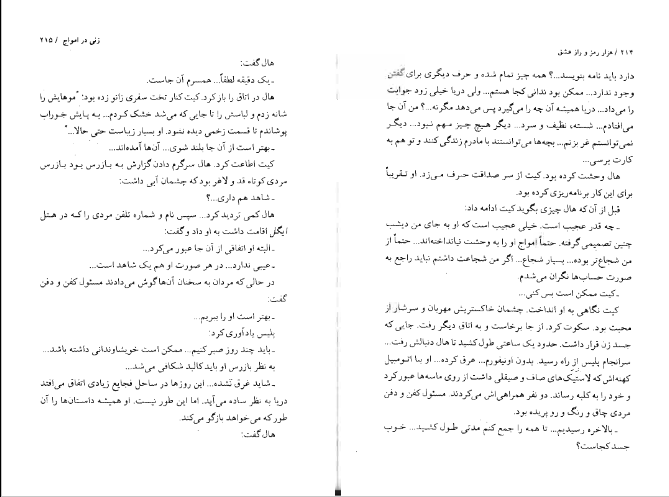 ۲۱۴ / هزار رمز و راز عشق
دارد باید نامه بنویسد...؟ همه چیز تمام شده و حرف دیگری برای گفتن
وجود ندارد... ممکن بود ندانی کجا هستم... ولی دریا خیلی زود جوابت
را می‌داد... دریا همیشه آن چه را می‌گیرد پس می‌دهد مگرنه...؟ من آن جا
می‌افتادم... شسته، نظیف و سرد... دیگر هیچ چیز مهم نبود... دیگر
نمی‌توانستم غر بزنم... بچه‌ها می‌توانستند با مادرم زندگی کنند و تو هم به
کارت برسی...
هال وحشت کرده بود. کیت از سر صداقت حرف می‌زد. او تقریباً
برای این کار برنامه‌ریزی کرده بود.
قبل از آن که هال چیزی بگوید کیت ادامه داد:
ـ چه قدر عجیب است. خیلی عجیب است که او به جای من دیشب
چنین تصمیمی گرفته. حتماً امواج او را به وحشت نیانداخته‌اند... حتماً از
من شجاع‌تر بوده... بسیار شجاع... اگر من شجاعت داشتم نباید راجع به
صورت حساب‌ها نگران می‌شدم.
ـ کیت ممکن است بس کنی...
کیت نگاهی به او انداخت. چشمان خاکستریش مهربان و سرشار از
محبت بود. سکوت کرد. از جا برخاست و به اتاق دیگر رفت. جایی که
جسد زن قرار داشت. حدود یک ساعتی طول کشید تا هال دنبالش رفت...
سرانجام پلیس از راه رسید. بدون اونیفورم... عرق کرده... او با اتومبیل
کهنه‌اش که لاستیک‌های صاف و صیقلی داشت از روی ماسه‌ها عبور کرد
و خود را به کلبه رساند. دو نفر همراهی‌اش می‌کردند. مسئول کفن و دفن
مردی چاق و رنگ و رو پریده بود.
ـ بالاخره رسیدیم... تا همه را جمع کنم مدتی طول کشید... خوب
جسد کجاست؟
زنی در امواج / ۲۱۵
هال گفت:
ـ یک دقیقه لطفاً... همسرم آن جاست.
هال در اتاق را باز کرد. کیت کنار تخت سفری زانو زده بود: "موهایش را
شانه زدم و لباسش را تا جایی که می‌شد خشک کردم... به پایش جوراب
پوشاندم تا قسمت زخمی دیده نشود. او بسیار زیباست حتی حالا..."
ـ بهتر است از آن جا بلند شوی... آن‌ها آمده‌اند...
کیت اطاعت کرد. هال سرگرم دادن گزارش به بازرس بود بازرس
مردی کوتاه قد و لاغر بود که چشمان آبی داشت:
ـ شاهد هم داری...؟
هال کمی تردید کرد... سپس نام و شماره تلفن مردی را که در هتل
ایگل اقامت داشت به او داد و گفت:
ـ البته او اتفاقی از آن جا عبور می‌کرد...
ـ عیبی ندارد... در هر صورت او هم یک شاهد است...
در حالی که مردان به سخنان آن‌ها گوش می‌دادند مسئول کفن و دفن
گفت:
ـ بهتر است او را ببریم...
پلیس یادآوری کرد:
ـ باید چند روز صبر کنیم... ممکن است خویشاوندانی داشته باشد...
به نظر بازرس او باید کالبد شکافی می‌شد...
ـ شاید غرق نشده... این روزها در ساحل فجایع زیادی اتفاق می‌افتد
دریا به نظر ساده می‌آید. اما این طور نیست. او همیشه داستان‌ها را آن
طور که می‌خواهد بازگو می‌کند.
هال گفت: